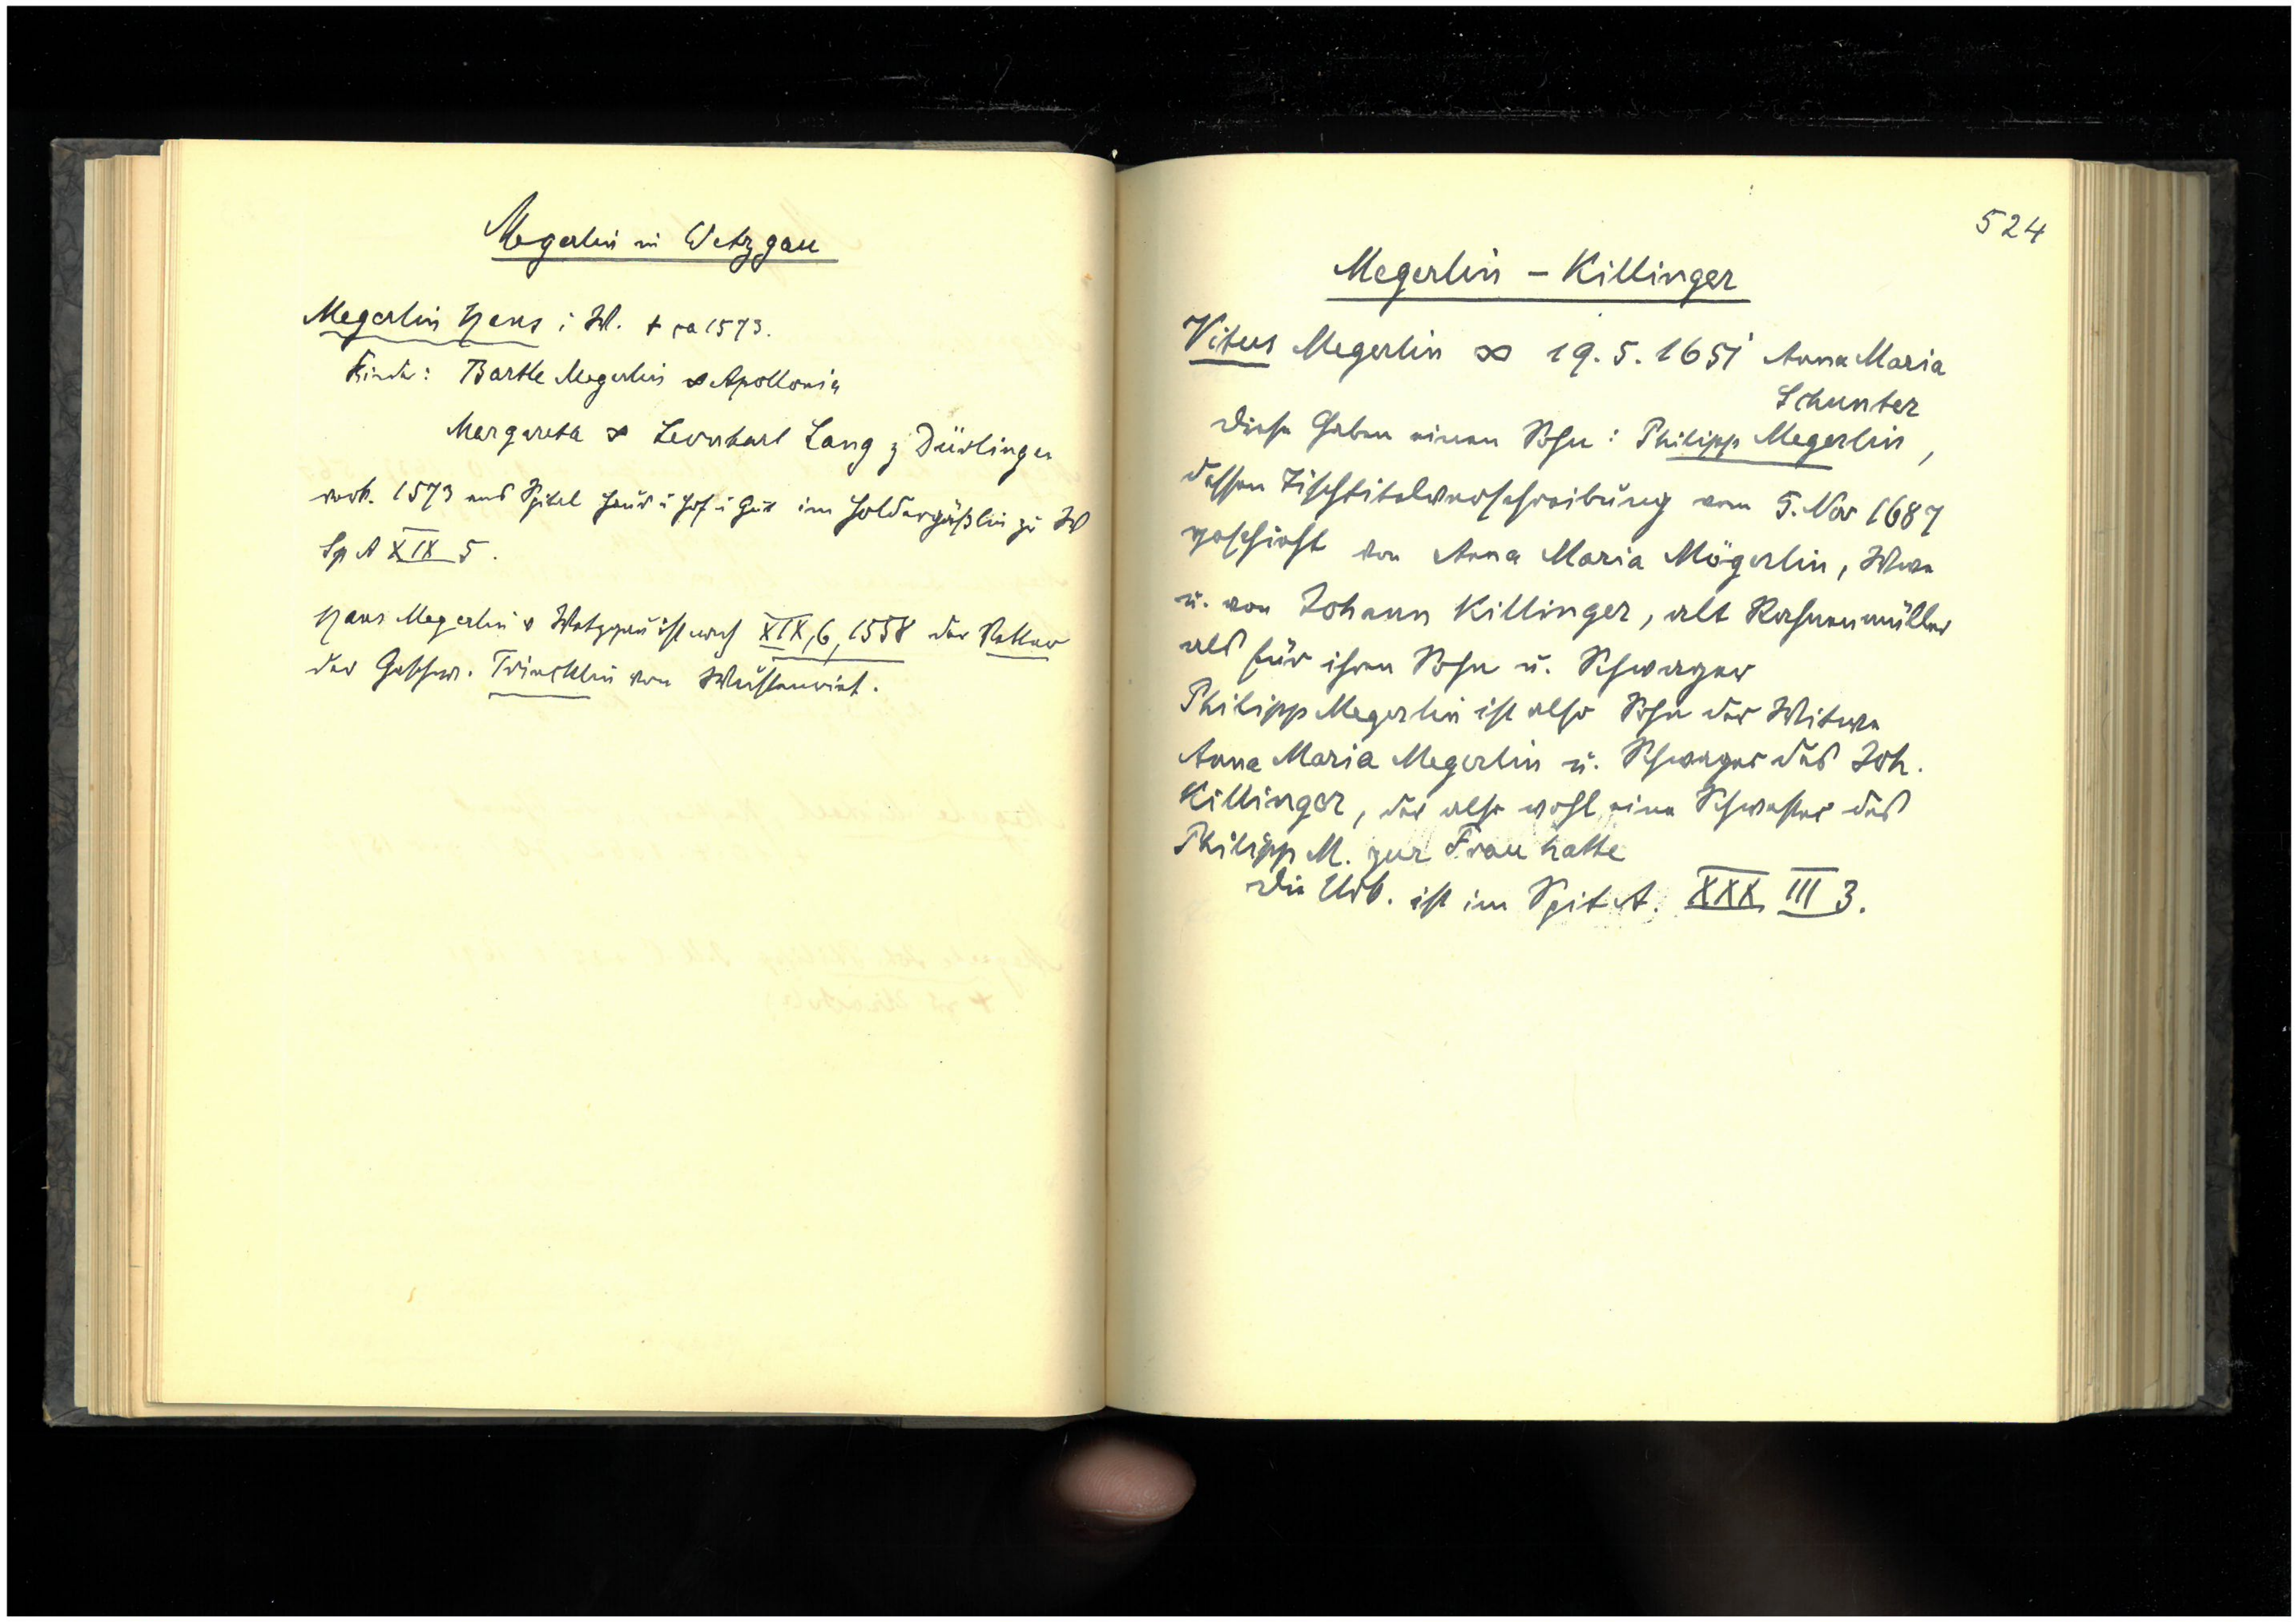 Megerlin in Wetzgau
Megerlin Hans i W. + ca 1573.
Kinder: Bartle Megerlin ∞ Apollonia
Margareta ∞ Leonhart Lang z Dürlingen
verk. 1573 ans Spital Haus u Hof u Gut im Holdergäßlin zu W
Sp A XIX 5.
Hans Megerlin v Wetzgau ist nach XIX, 6, 1558 der Vetter
der Geschw. Trincklin von Wüstenriet.
524
Megerlin – Killinger
Vitus Megerlin ∞ 19. 5. 1651 Anna Maria
Schunter
Diese haben einen Sohn: Philipp Megerlin,
dessen Tischtitelverschreibung vom 5. Nov 1687
geschieht von Anna Maria Mögerlin, Wwe
u. von Johann Killinger, alt Rahnenmüller
als für ihren Sohn u. Schwager
Philipp Megerlin ist also Sohn der Witwe
Anna Maria Megerlin u. Schwager des Joh.
Killinger, der also wohl eine Schwester des
Philipp M. zur Frau hatte
Die Urk. ist im Spit A. XXX III 3.